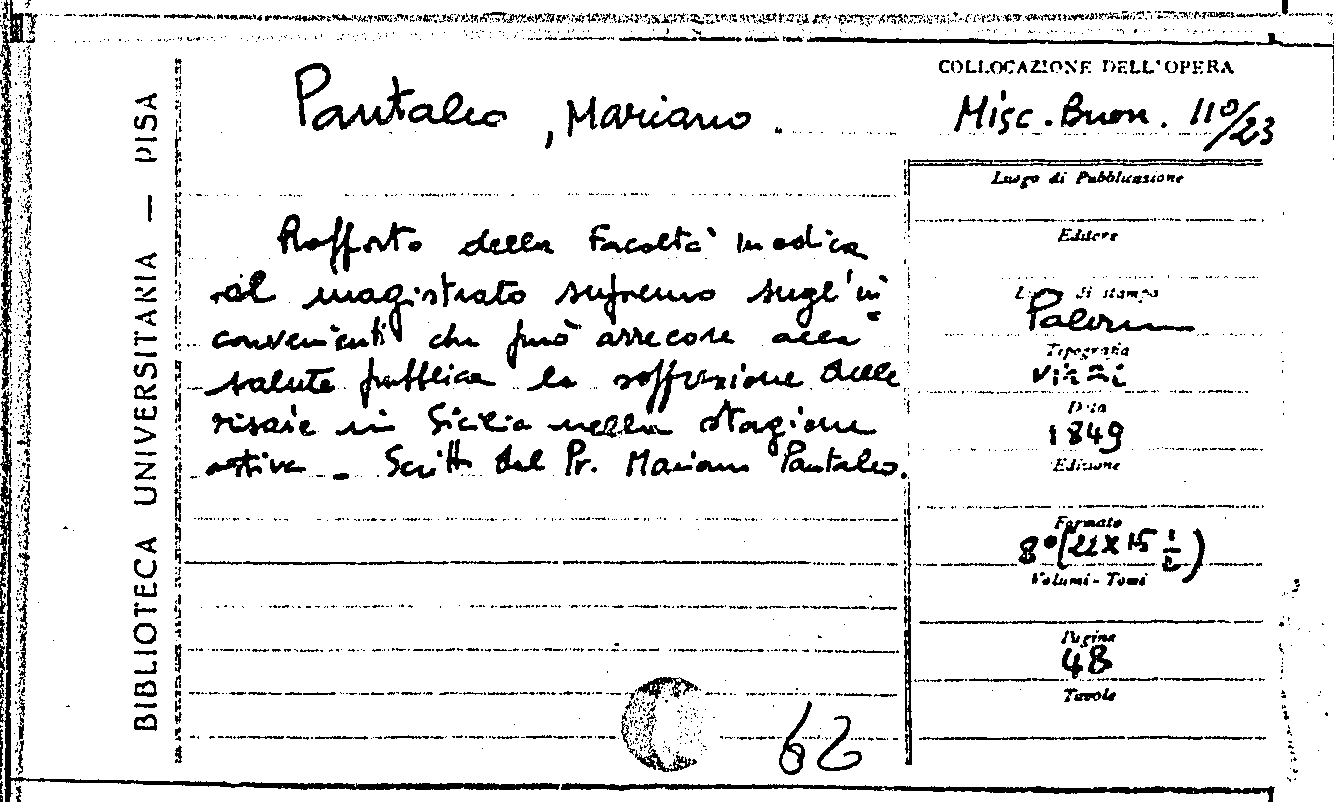 BIBLIOTECA UNIVERSITARIA — PISA
Pantaleo, Mariano.
Rapporto della Facoltà medica
al magistrato supremo sugl'in
convenienti che può arrecare alla
salute pubblica la soffuzione delle
risaie in Sicilia nella stagione
estiva - Scritto dal Pr. Mariano Pantaleo.
62
COLLOCAZIONE DELL'OPERA
Misc. Buon. 110/23
Luogo di Pubblicazione
Editore
di stampa
Palermo
Tipografia
Data
1849
Edizione
Formato
8° (22 x 15 1/2)
Volumi - Tomi
Pagine
48
Tavole